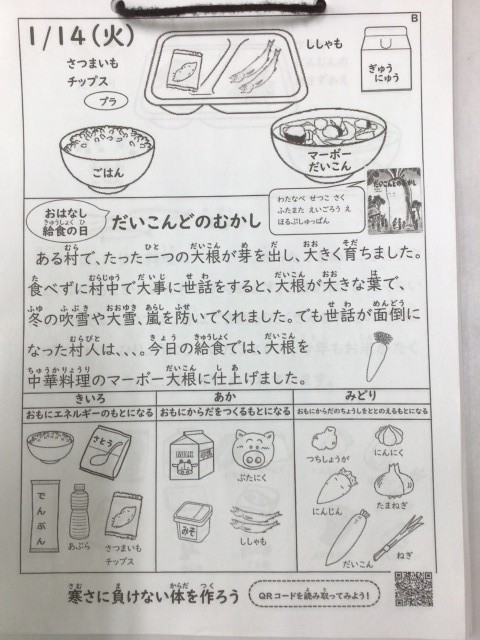 B
1/14(火)
さつまいも
チップス
プラ
ししゃも
ぎゅう
にゅう
ごはん
マーボー
だいこん
おはなし
給食の日
だいこんどのむかし
わたなべ せつこ さく
ふたまた えいごろう え
ほるぷしゅっぱん
だいこんどのむかし
ある村で、たった一つの大根が芽を出し、大きく育ちました。
食べずに村中で大事に世話をすると、大根が大きな葉で、
冬の吹雪や大雪、嵐を防いでくれました。でも世話が面倒に
なった村人は、、、。今日の給食では、大根を
中華料理のマーボー大根に仕上げました。
きいろ
おもにエネルギーのもとになる
さとう
でんぷん
あぶら
さつまいも
チップス
あか
おもにからだをつくるもとになる
ぶたにく
みそ
ししゃも
みどり
おもにからだのちょうしをととのえるもとになる
つちしょうが
にんにく
にんじん
たまねぎ
だいこん
ねぎ
寒さに負けない体を作ろう
QRコードを読み取ってみよう!